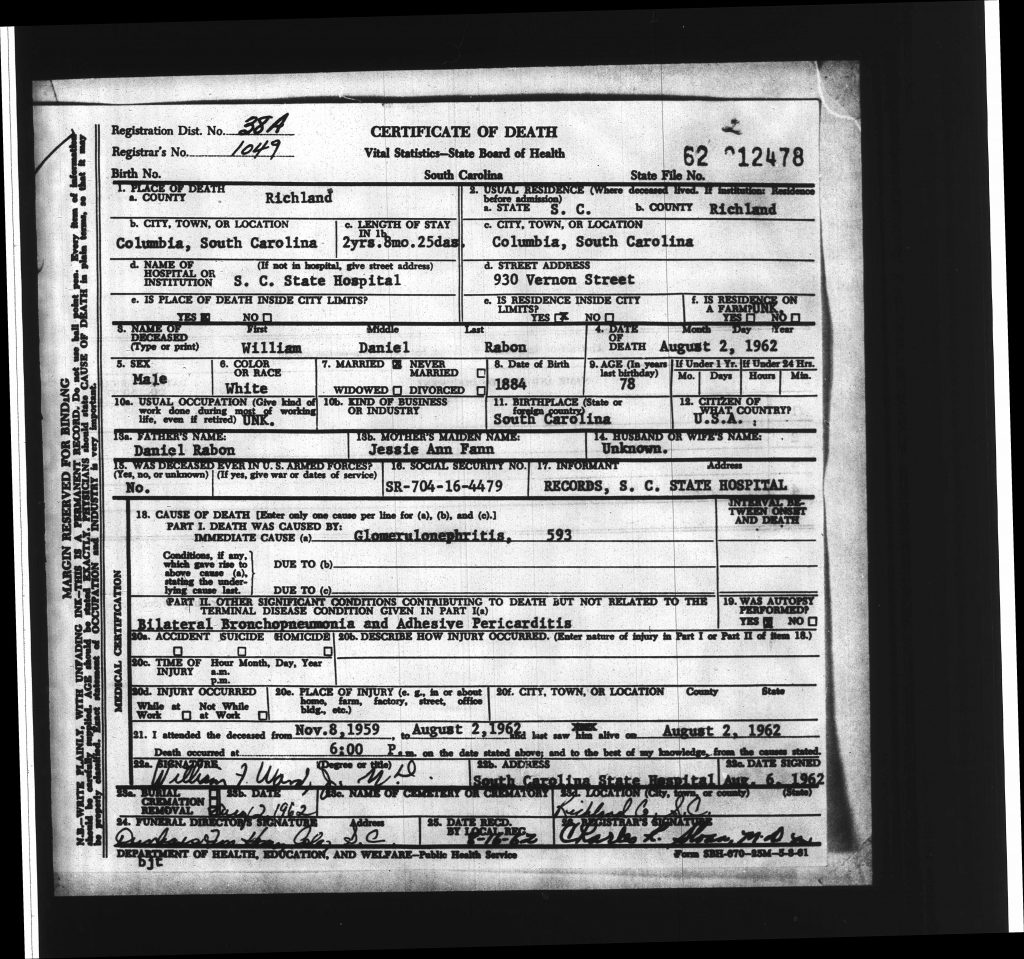 Registration Dist. No. 38A
CERTIFICATE OF DEATH
2
Registrar's No. 1049
Vital Statistics—State Board of Health
62 012478
Birth No.
South Carolina
State File No.
1. PLACE OF DEATH
a. COUNTY Richland
2. USUAL RESIDENCE (Where deceased lived. If institution: Residence before admission)
a. STATE S. C. b. COUNTY Richland
b. CITY, TOWN, OR LOCATION
Columbia, South Carolina
c. LENGTH OF STAY IN 1b
2yrs.8mo.25das.
c. CITY, TOWN, OR LOCATION
Columbia, South Carolina
d. NAME OF HOSPITAL OR INSTITUTION (If not in hospital, give street address)
S. C. State Hospital
d. STREET ADDRESS
930 Vernon Street
e. IS PLACE OF DEATH INSIDE CITY LIMITS?
YES NO
e. IS RESIDENCE INSIDE CITY LIMITS?
YES X NO
f. IS RESIDENCE ON A FARM? UNK.
YES NO
3. NAME OF DECEASED (Type or print)
First Middle Last
William Daniel Rabon
4. DATE OF DEATH
Month Day Year
August 2, 1962
5. SEX
Male
6. COLOR OR RACE
White
7. MARRIED NEVER MARRIED
WIDOWED DIVORCED
8. Date of Birth
1884
9. AGE (In years last birthday)
78
If Under 1 Yr. If Under 24 Hrs.
Mo. Days Hours Min.
10a. USUAL OCCUPATION (Give kind of work done during most of working life, even if retired) UNK.
10b. KIND OF BUSINESS OR INDUSTRY
11. BIRTHPLACE (State or foreign country)
South Carolina
12. CITIZEN OF WHAT COUNTRY?
U.S.A.
13a. FATHER'S NAME:
Daniel Rabon
13b. MOTHER'S MAIDEN NAME:
Jessie Ann Fann
14. HUSBAND OR WIFE'S NAME:
Unknown.
15. WAS DECEASED EVER IN U. S. ARMED FORCES?
(Yes, no, or unknown) (If yes, give war or dates of service)
No.
16. SOCIAL SECURITY NO.
SR-704-16-4479
17. INFORMANT Address
RECORDS, S. C. STATE HOSPITAL
18. CAUSE OF DEATH [Enter only one cause per line for (a), (b), and (c).]
INTERVAL BETWEEN ONSET AND DEATH
PART I. DEATH WAS CAUSED BY:
IMMEDIATE CAUSE (a) Glomerulonephritis, 593
Conditions, if any, which gave rise to above cause (a), stating the underlying cause last.
DUE TO (b)
DUE TO (c)
PART II. OTHER SIGNIFICANT CONDITIONS CONTRIBUTING TO DEATH BUT NOT RELATED TO THE TERMINAL DISEASE CONDITION GIVEN IN PART I(a)
Bilateral Bronchopneumonia and Adhesive Pericarditis
19. WAS AUTOPSY PERFORMED?
YES NO
20a. ACCIDENT SUICIDE HOMICIDE
20b. DESCRIBE HOW INJURY OCCURRED. (Enter nature of injury in Part I or Part II of item 18.)
20c. TIME OF INJURY
Hour Month, Day, Year
a.m.
p.m.
20d. INJURY OCCURRED
While at Work Not While at Work
20e. PLACE OF INJURY (e. g., in or about home, farm, factory, street, office bldg., etc.)
20f. CITY, TOWN, OR LOCATION County State
21. I attended the deceased from Nov.8,1959 to August 2,1962 and last saw him alive on August 2, 1962
Death occurred at 6:00 P.m. on the date stated above; and to the best of my knowledge, from the causes stated.
22a. SIGNATURE (Degree or title)
William F. M.D.
22b. ADDRESS
South Carolina State Hospital
22c. DATE SIGNED
Aug. 6, 1962
23a. BURIAL CREMATION REMOVAL
23b. DATE
1962
23c. NAME OF CEMETERY OR CREMATORY
23d. LOCATION (City, town, or county) (State)
Richland Co. S.C.
24. FUNERAL DIRECTOR'S SIGNATURE Address
S.C.
25. DATE RECD. BY LOCAL REG.
8-16-62
26. REGISTRAR'S SIGNATURE
Charles L. Sloan, M.D.
DEPARTMENT OF HEALTH, EDUCATION, AND WELFARE—Public Health Service
Form SBH-670-25M-5-8-61
bjt
MARGIN RESERVED FOR BINDING
MEDICAL CERTIFICATION